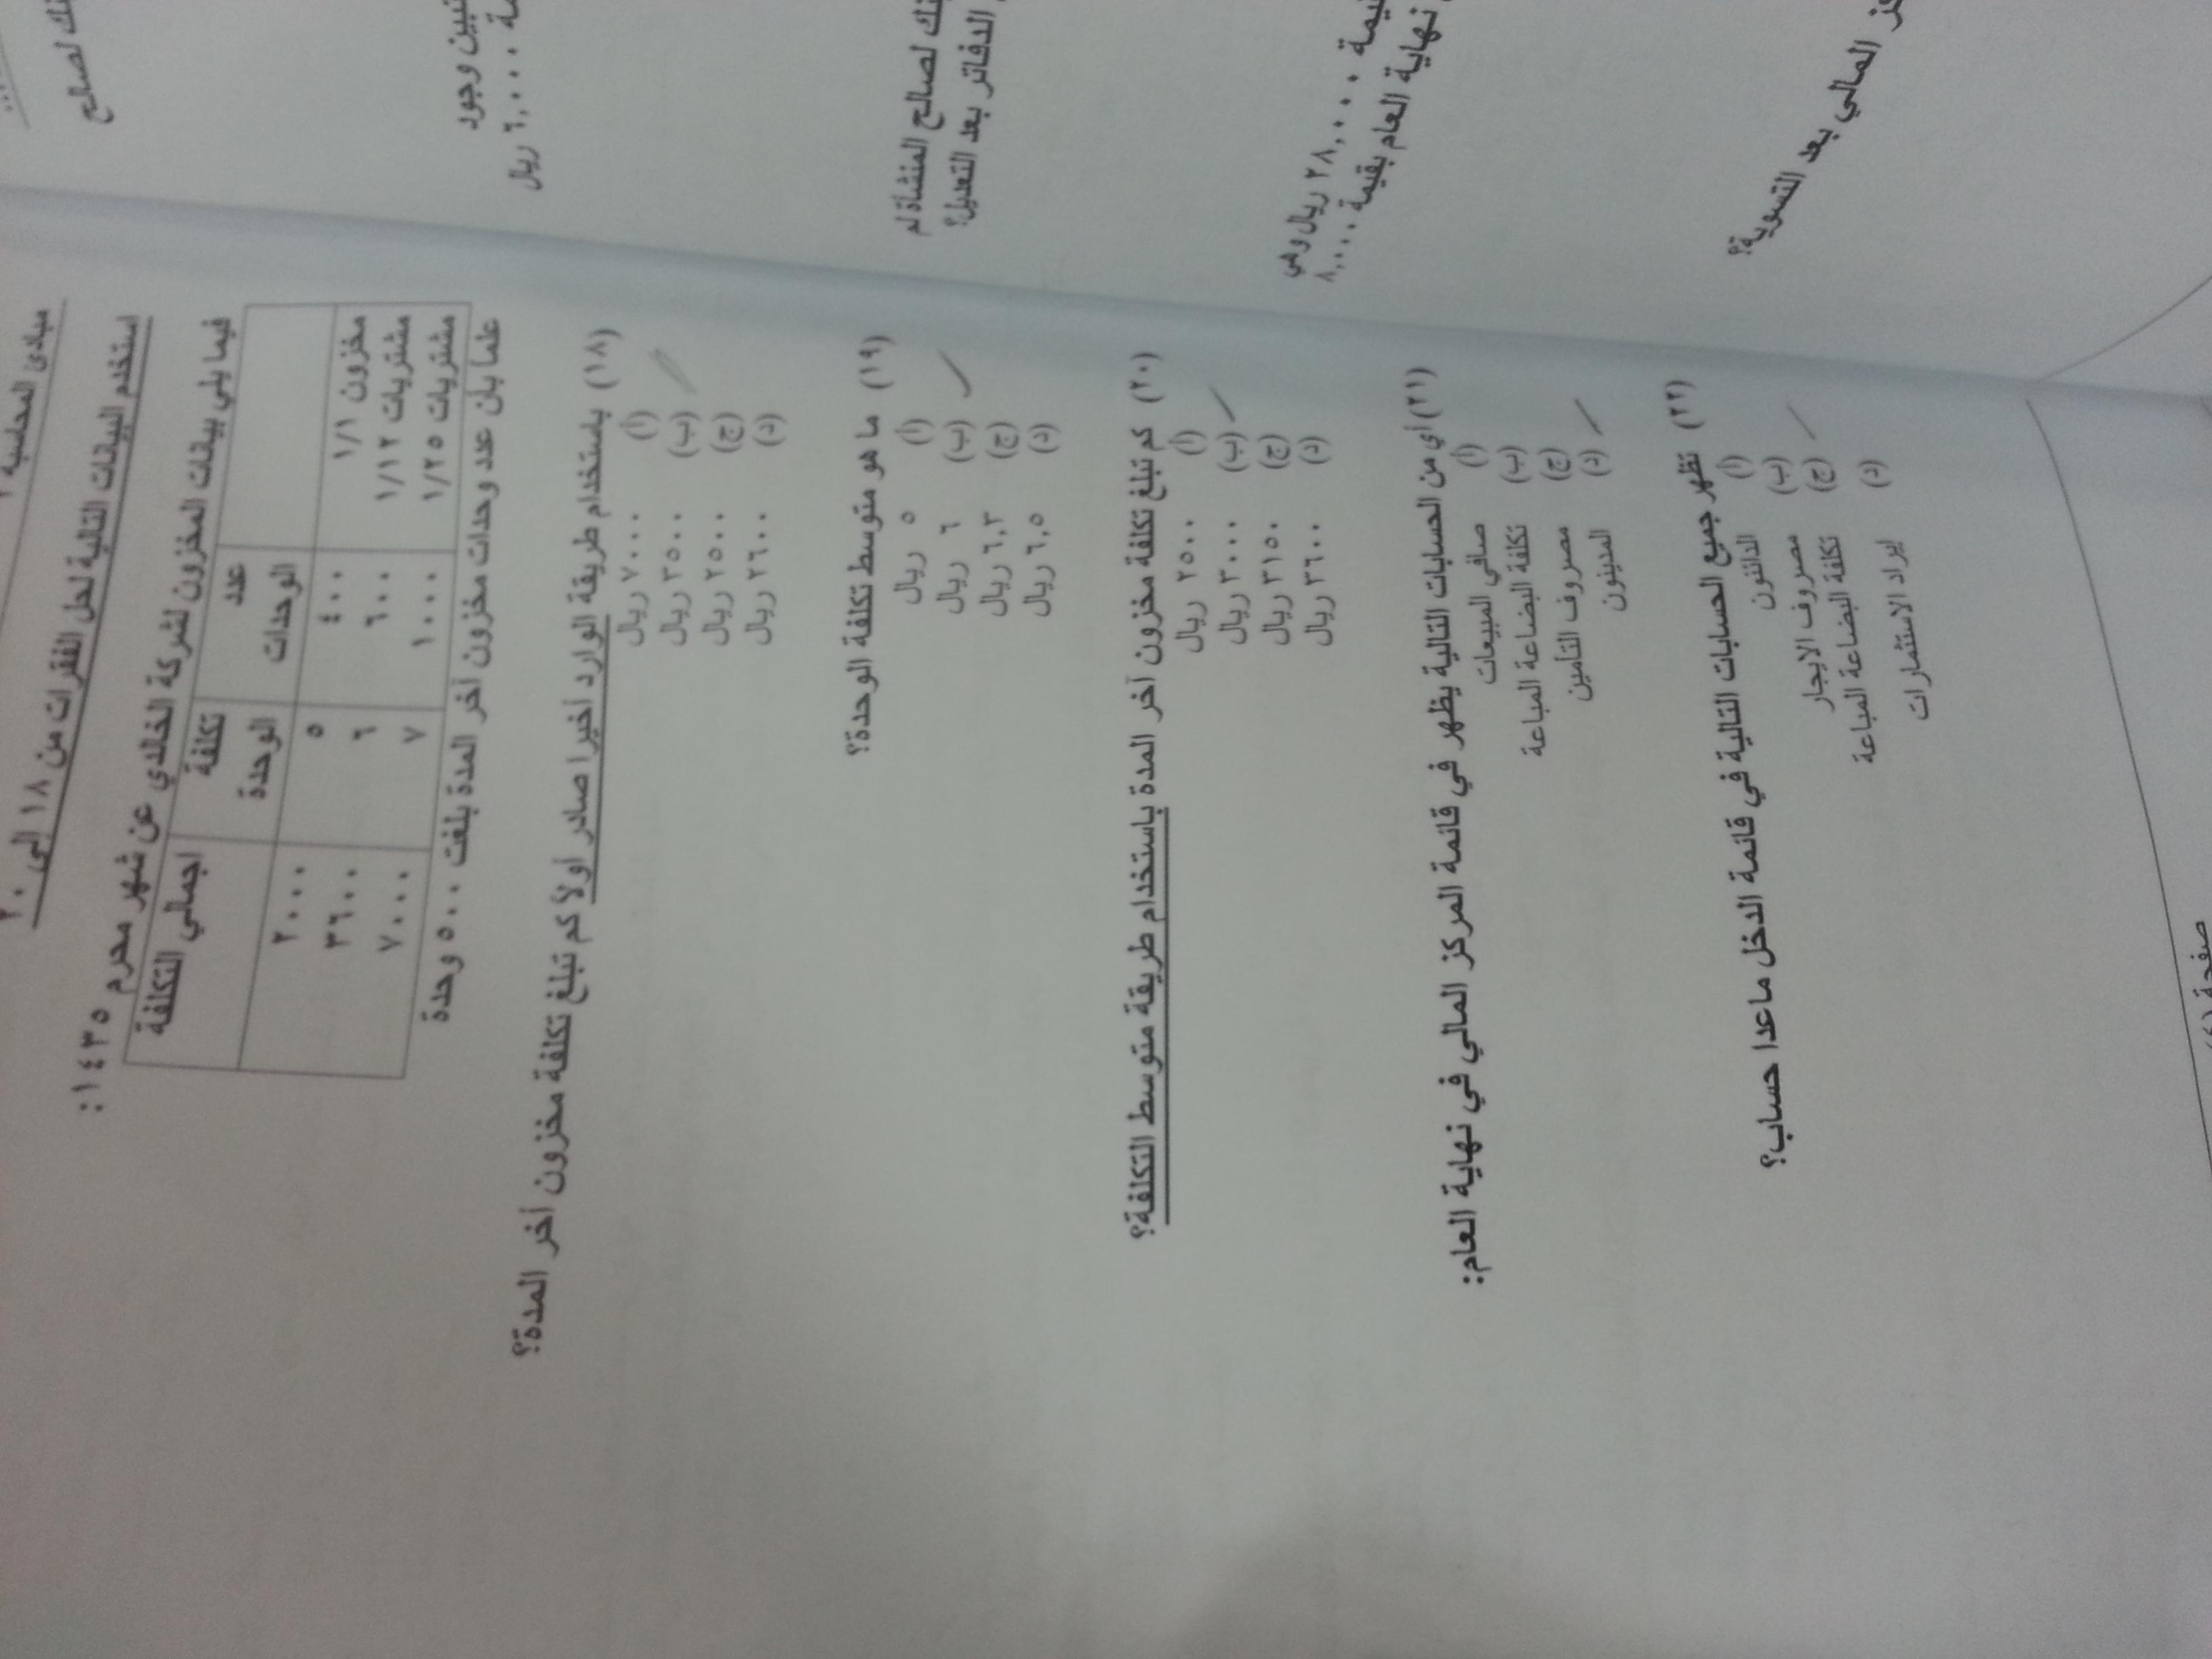 مبادئ المحاسبة
استخدم البيانات التالية لحل الفقرات من ١٨ إلى ٢٠
فيما يلي بيانات المخزون لشركة الخالدي عن شهر محرم ١٤٣٥:
عدد الوحدات تكلفة الوحدة اجمالي التكلفة
مخزون ١/١ ٤٠٠ ٥ ٢٠٠٠
مشتريات ١/١٢ ٦٠٠ ٦ ٣٦٠٠
مشتريات ١/٢٥ ١٠٠٠ ٧ ٧٠٠٠
علما بأن عدد وحدات مخزون آخر المدة بلغت ٥٠٠ وحدة
(١٨) باستخدام طريقة الوارد أخيرا صادر أولا كم تبلغ تكلفة مخزون آخر المدة؟
(أ) ٧٠٠٠ ريال
(ب) ٣٥٠٠ ريال
(ج) ٢٥٠٠ ريال
(د) ٢٦٠٠ ريال
(١٩) ما هو متوسط تكلفة الوحدة؟
(أ) ٥ ريال
(ب) ٦ ريال
(ج) ٦,٣ ريال
(د) ٦,٥ ريال
(٢٠) كم تبلغ تكلفة مخزون آخر المدة باستخدام طريقة متوسط التكلفة؟
(أ) ٢٥٠٠ ريال
(ب) ٣٠٠٠ ريال
(ج) ٣١٥٠ ريال
(د) ٣٦٠٠ ريال
(٢١) أي من الحسابات التالية يظهر في قائمة المركز المالي في نهاية العام:
(أ) صافي المبيعات
(ب) تكلفة البضاعة المباعة
(ج) مصروف التأمين
(د) المدينون
(٢٢) تظهر جميع الحسابات التالية في قائمة الدخل ماعدا حساب؟
(أ) الدائنون
(ب) مصروف الايجار
(ج) تكلفة البضاعة المباعة
(د) إيراد الاستثمارات
صفحة
لصالح
وجود
٦,٠٠٠ ريال
لصالح المنشأة لم
الدفاتر بعد التعديل؟
٢٨,٠٠٠ ريال وهي
نهاية العام بقيمة ٨,٠٠٠
المالي بعد التسوية؟